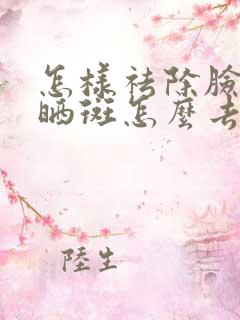 怎樣祛除臉
晒斑怎麼去
陸生